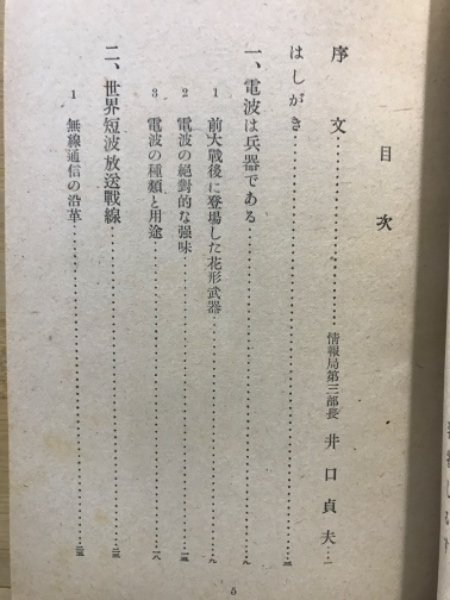 目次
序文……………………情報局第三部長 井口貞夫…一
はしがき……………………
一、電波は兵器である……………………九
1 前大戰後に登場した花形武器……………………九
2 電波の絕對的な强味……………………一五
3 電波の種類と用途……………………一八
二、世界短波放送戰線……………………
1 無線通信の沿革……………………
5